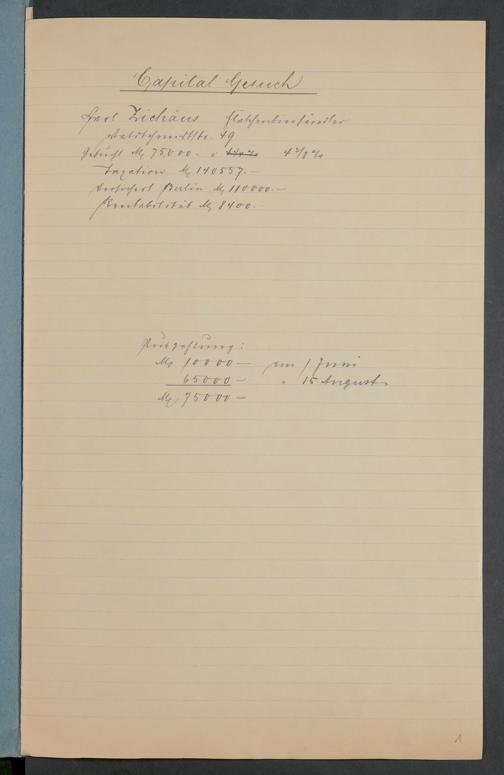 Capital Gesuch
Carl Ziehaus Flaschenbierhändler
49
Gesucht M 75000.- a 4 3/8 %
Taxation M 140557.-
versichert Berlin M 110000.-
Rentabilität M 8400.-
Auszahlung:
M 10000 - am 1 Juni
65000 - " 15 August
M 75000 -
1